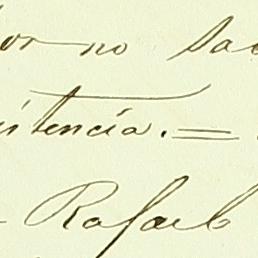 or no sa
istencia. =
Rafael